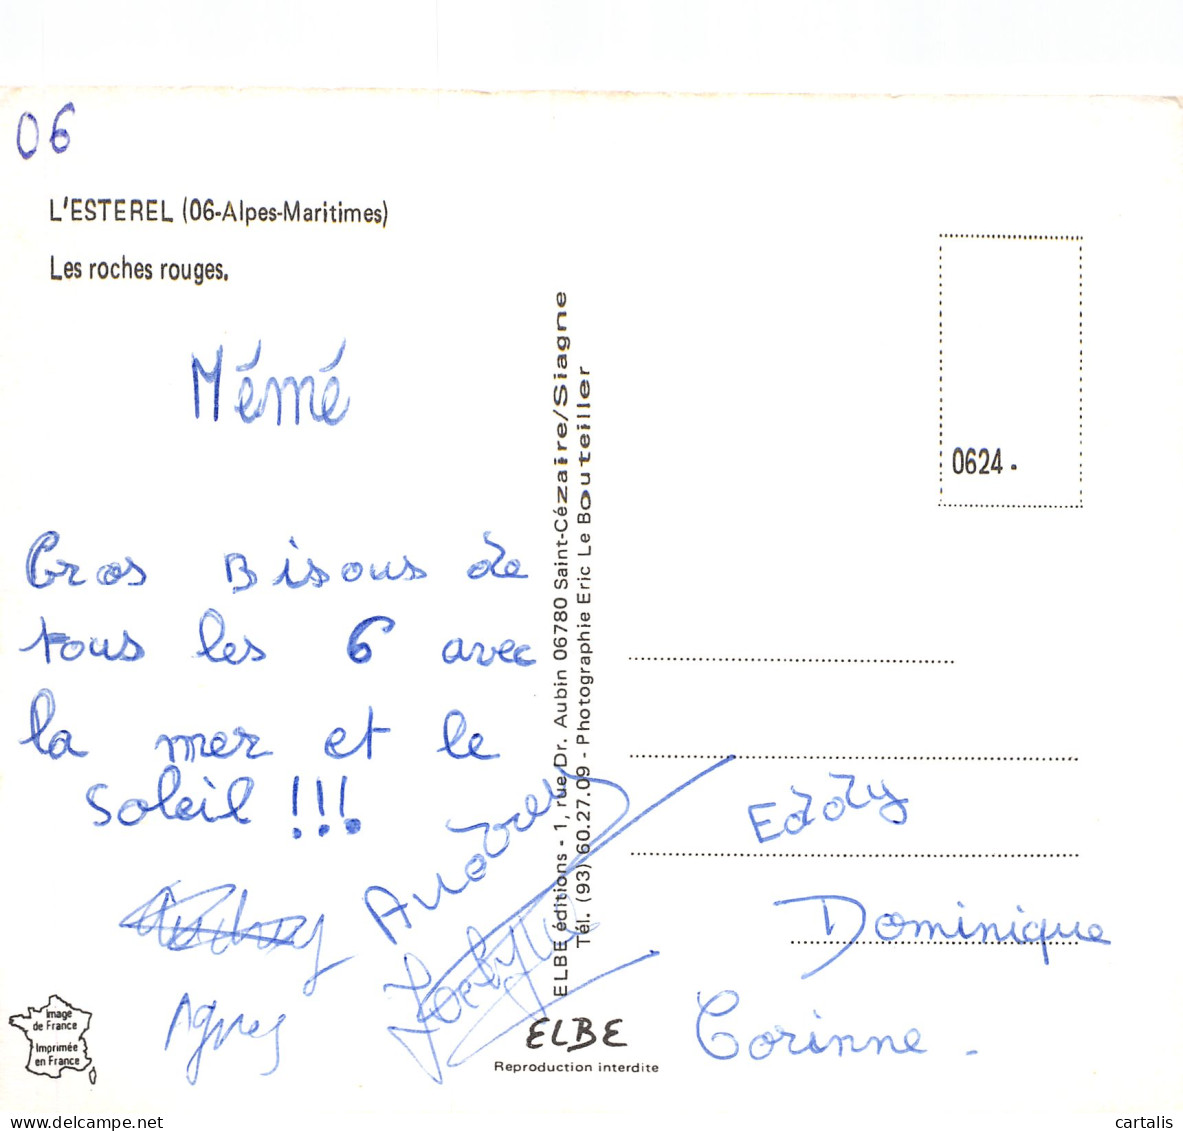 06
L'ESTEREL (06-Alpes-Maritimes)
Les roches rouges.
Mémé
Gros Bisous de
tous les 6 avec
la mer et le
soleil !!!
Agnes
Eddy
Dominique
Corinne.
0624.
ELBE éditions - 1, rue Dr. Aubin 06780 Saint-Cézaire/Siagne
Tél. (93) 60.27.09 - Photographie Eric Le Bouteiller
Image
de France
Imprimée
en France
ELBE
Reproduction interdite
cartalis
delcampe.net